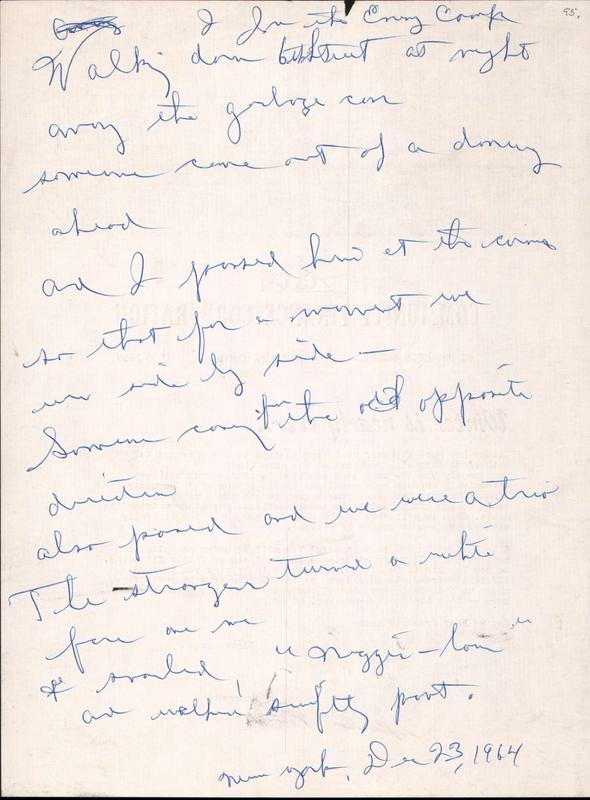 95.
I In the Enemy Camp
Walking down street at night
among the garbage cans
someone came out of a doorway
ahead
and I passed him at the corner
so that for a moment we
were side by side —
Someone coming from the opposite
direction
also passed and we were a trio
The stranger turned a white
face on me
& snarled, "nigger-lover"
and walked swiftly past.
New York, Dec 23, 1964